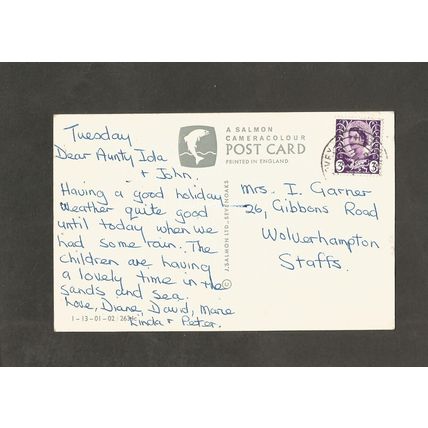 A SALMON
CAMERACOLOUR
POST CARD
PRINTED IN ENGLAND
Tuesday
Dear Aunty Ida
+ John.
Having a good holiday
weather quite good
until today when we
had some rain. The
children are having
a lovely time in the
sands and sea.
Love, Diane, David, Marie
Linda + Peter.
1-13-01-02
J. SALMON LTD., SEVENOAKS
Mrs. I. Garner
26, Gibbons Road
Wolverhampton
Staffs.
3 3